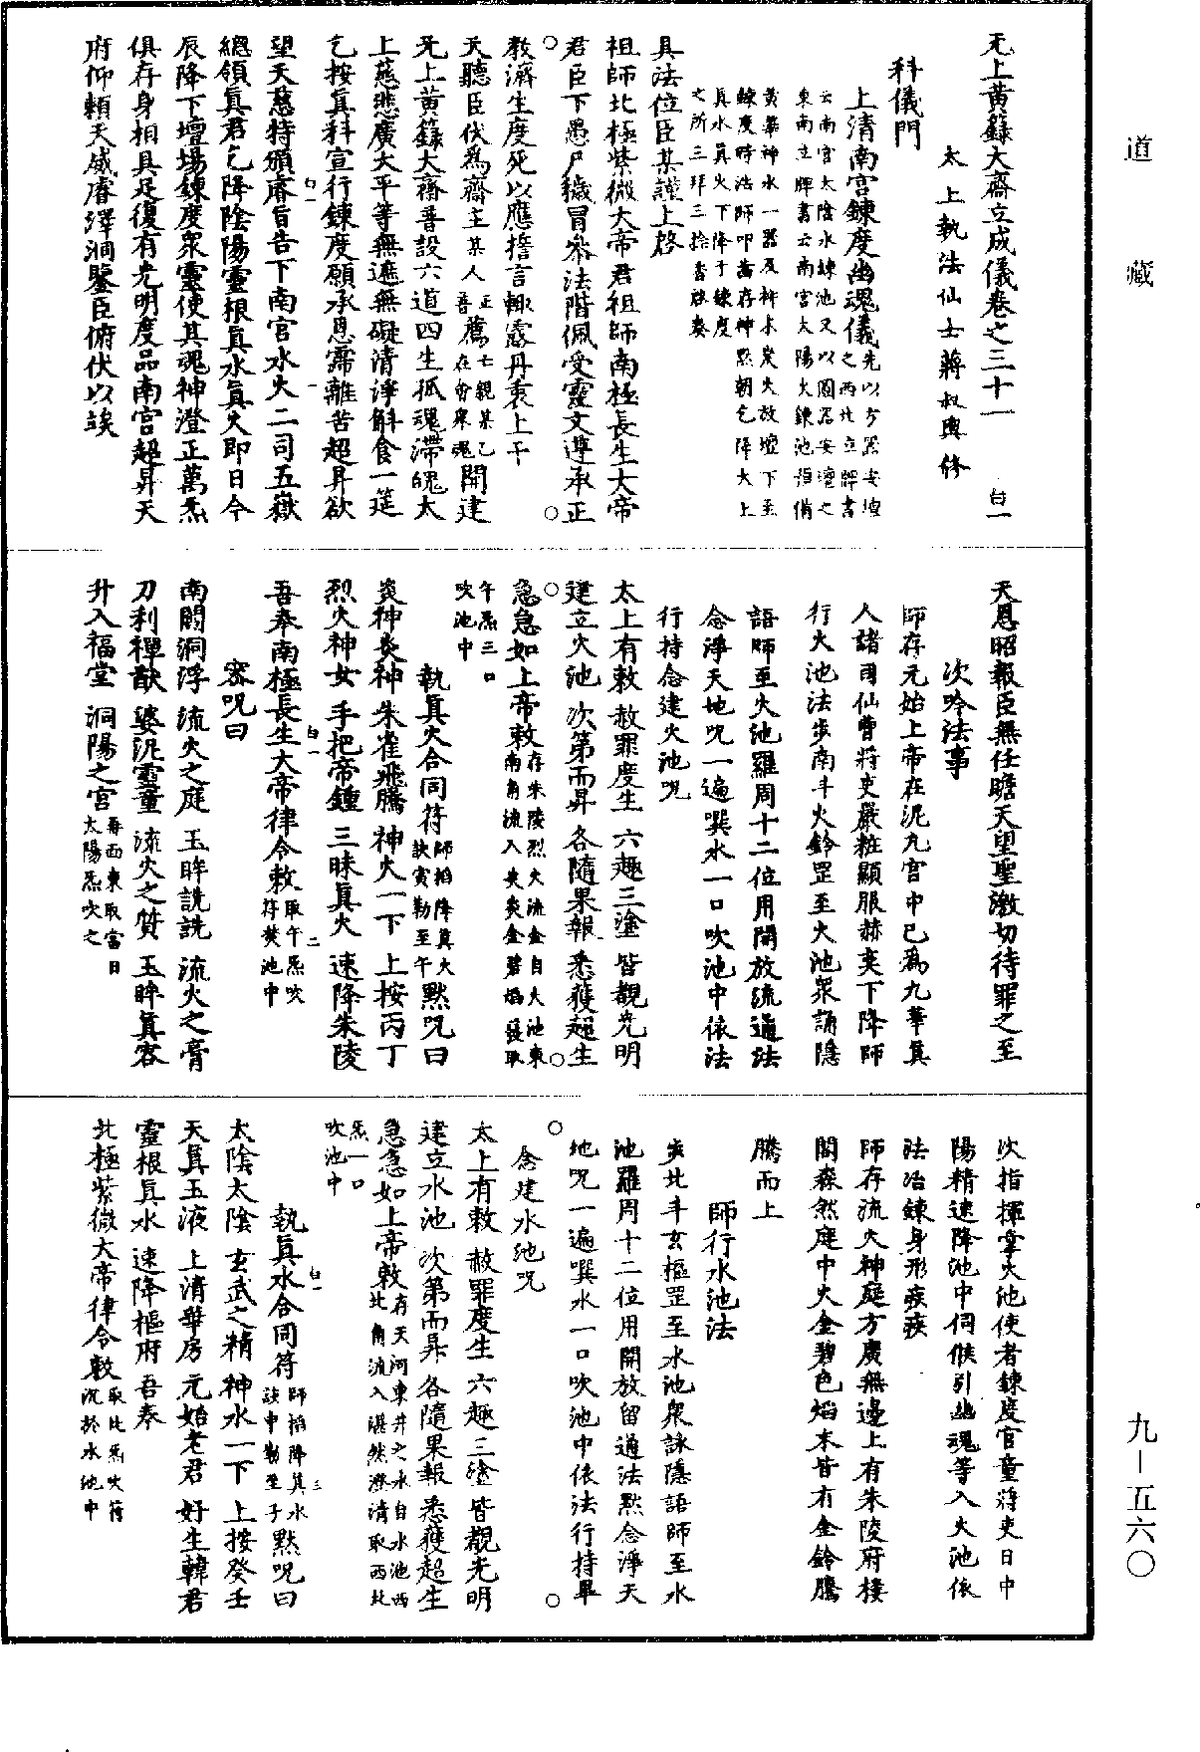 道藏
无上黃籙大齋立成儀卷之三十一 白一
太上執法仙士蔣叔輿修
科儀門
上清南宮鍊度幽魂儀 先以方器安壇
之西北立牌書
云南宮太陰水鍊池又以圓器安壇之
東南立牌書云南宮太陽火鍊池預備
黃華神水一器及柈木炭火放壇下至
鍊度時法師叩齒存神默朝乞降太上
真水真火下降于鍊度
之所三拜三捻香啟奏
具法位臣某謹上啓
祖師北極紫微大帝君祖師南極長生大帝
君臣下愚尸穢冒叅法階佩受靈文遵承正
教濟生度死以應擔言輙瀝丹衷上干
天聽臣伏爲齋主某人 正薦亡親某乙
普在會衆魂 開建
无上黃籙大齋普設六道四生孤魂滯魄太
上慈悲廣大平等無遮無礙清淨斛食一筵
乞按真科宣行鍊度願承恩霈離苦超昇欲
望天慈特頒睿旨告下南宮水火二司五嶽
總領真君乞降陰陽靈根真水真火即日今
辰降下壇場鍊度衆靈使其魂神澄正萬炁
俱存身相具足復有光明度品南宮超昇天
府仰賴天威睿澤洞鑒臣俯伏以竢
天恩昭報臣無任瞻天望聖激切待罪之至
次吟法事
師存元始上帝在泥丸宮中己爲九華真
人諸司仙曹將吏嚴粧顯服赫奕下降師
行火池法步南斗火鈴罡至火池衆誦隱
語師至火池羅周十二位用開放流通法
念淨天地呪一遍噀水一口吹池中依法
行持念建火池呪
太上有敕 赦罪度生 六趣三塗 皆覩光明
建立火池 次第而昇 各隨果報 悉獲超生
急急如上帝敕 存朱陵烈火流金自火池東
南角流入炎炎金碧焰發取
午炁三口
吹池中
執真火合同符 師掐降真火
訣寅勒至午 默呪曰
炎神炎神 朱雀飛騰 神火一下 上按丙丁
烈火神女 手把帝鍾 三昧真火 速降朱陵
吾奉南極長生大帝律令敕 取午炁吹
符焚池中
密呪曰
南閻洞浮 流火之庭 玉眸詵詵 流火之膏
刀利禪猷 婆泥靈童 流火之質 玉眸真客
升入福堂 洞陽之宮 再面東取當日
太陽炁吹之
次指揮掌火池使者鍊度官童將吏日中
陽精速降池中伺候引幽魂等入火池依
法冶鍊身形痰疾
師存流火神庭方廣無邊上有朱陵府樓
閣森然庭中火金碧色焰末皆有金鈴騰
騰而上
師行水池法
步北斗玄樞罡至水池衆詠隱語師至水
池羅周十二位用開放留通法默念淨天
地呪一遍噀水一口吹池中依法行持畢
念建水池呪
太上有敕 赦罪度生 六趣三塗 皆覩光明
建立水池 次第而昇 各隨果報 悉獲超生
急急如上帝敕 存天河東井之水自水池西
北角流入湛然澄清取西北
炁一口
吹池中
執真水合同符 師掐降真水
訣申勒至子 默呪曰
太陰太陰 玄武之精 神水一下 上按癸壬
天真玉液 上清華房 元始老君 好生韓君
靈根真水 速降樞府 吾奉
北極紫微大帝律令敕 取北炁吹符
沉於水池中
九—五六〇